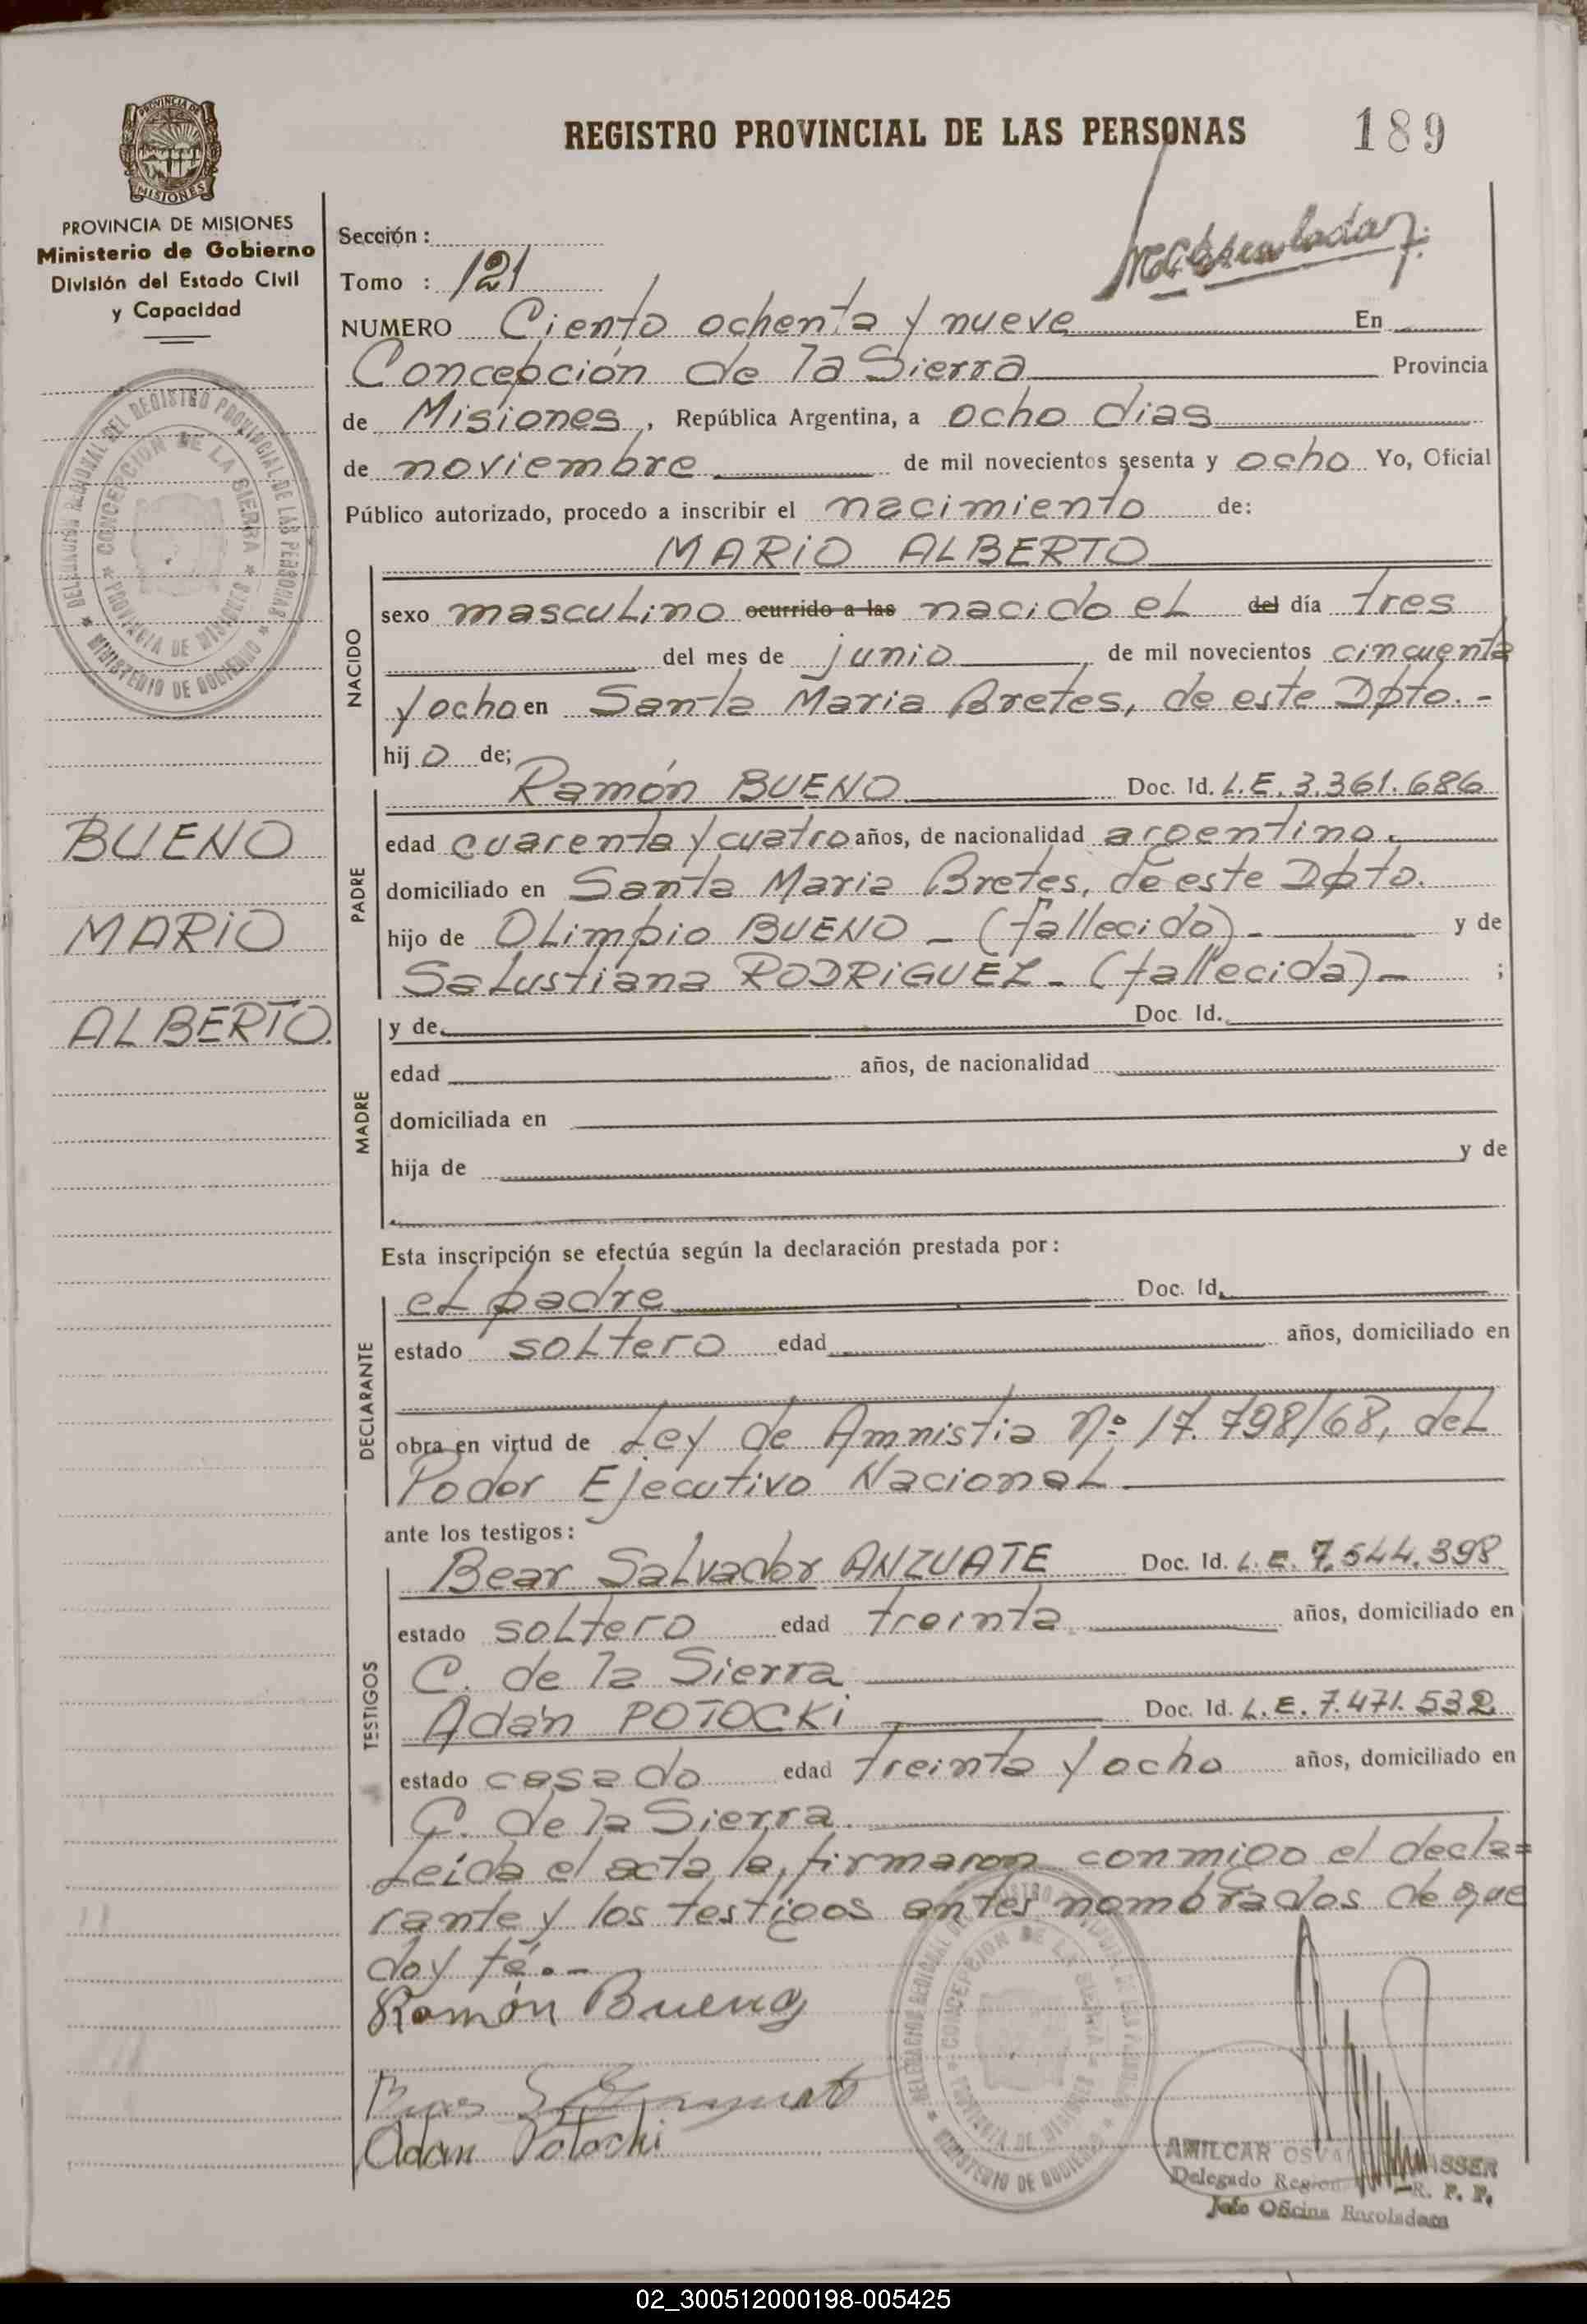 REGISTRO PROVINCIAL DE LAS PERSONAS
189
PROVINCIA DE
MISIONES
PROVINCIA DE MISIONES
Ministerio de Gobierno
División del Estado Civil
y Capacidad
Sección :
Tomo : 121
NUMERO Ciento ochenta y nueve En
Concepción de la Sierra Provincia
de Misiones , República Argentina, a ocho dias
de noviembre de mil novecientos sesenta y ocho Yo, Oficial
Público autorizado, procedo a inscribir el nacimiento de:
MARIO ALBERTO
DELEGACION REGIONAL DEL REGISTRO PROVINCIAL DE LAS PERSONAS
* MINISTERIO DE GOBIERNO *
CONCEPCION DE LA SIERRA
* PROVINCIA DE MISIONES *
NACIDO
sexo masculino ocurrido a las nacido el del día tres
del mes de junio de mil novecientos cincuenta
y ocho en Santa Maria Bretes, de este Dpto.-
hijo de;
PADRE
Ramón BUENO Doc. Id. L.E. 3.361.686
edad cuarenta y cuatro años, de nacionalidad argentino.
domiciliado en Santa Maria Bretes, de este Dpto.
hijo de Olimpio BUENO - (fallecido)- y de
Salustiana RODRIGUEZ - (fallecida)- ;
BUENO
MARIO
ALBERTO.
MADRE
y de Doc. Id.
edad años, de nacionalidad
domiciliada en
hija de y de
Esta inscripción se efectúa según la declaración prestada por :
DECLARANTE
el padre Doc. Id.
estado soltero edad años, domiciliado en
obra en virtud de Ley de Amnistia Nº 17.798/68, del
Poder Ejecutivo Nacional
ante los testigos :
TESTIGOS
Bear Salvador ANZUATE Doc. Id. L.E. 7.544.398
estado soltero edad treinta años, domiciliado en
C. de la Sierra
Adán POTOCKI Doc. Id. L.E. 7.471.532
estado casado edad treinta y ocho años, domiciliado en
C. de la Sierra.
Leida el acta la, firmaron conmigo el decla=
rante y los testigos antes nombrados de que
doy fé.-
Ramón Bueno
Adan Potocki
DELEGACION REGIONAL DEL REGISTRO PROVINCIAL DE LAS PERSONAS
* MINISTERIO DE GOBIERNO *
CONCEPCION DE LA SIERRA
* PROVINCIA DE MISIONES *
AMILCAR
Delegado
R. P. P.
Jefe Oficina Enroladora
02_300512000198-005425